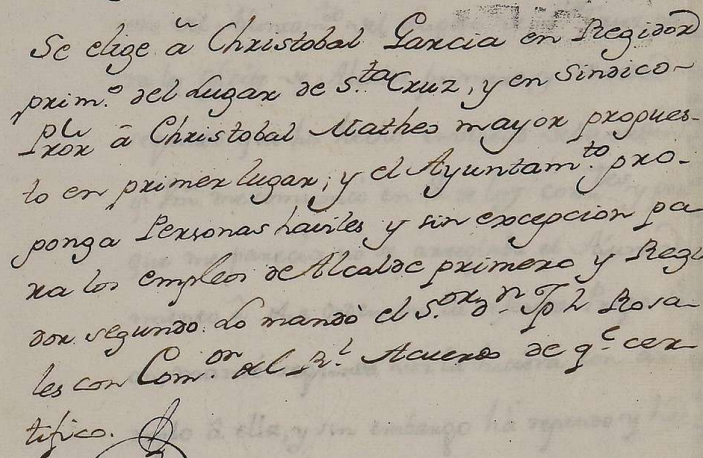 Se elige â Christobal Garcia en Regidor
prim.º del Lugar de S.ta Cruz, y en Sindico
Pror â Christobal Matheo mayor propues-
to en primer lugar; y el Ayuntam.to pro-
ponga Personas haviles y sin excepcion pa
ra los empleos de Alcalde primero y Regi
dor segundo. Lo mandò el S.or d.n Jph Rosa-
les con Com.on del R.l Acuerdo de q.e cer-
tifico.